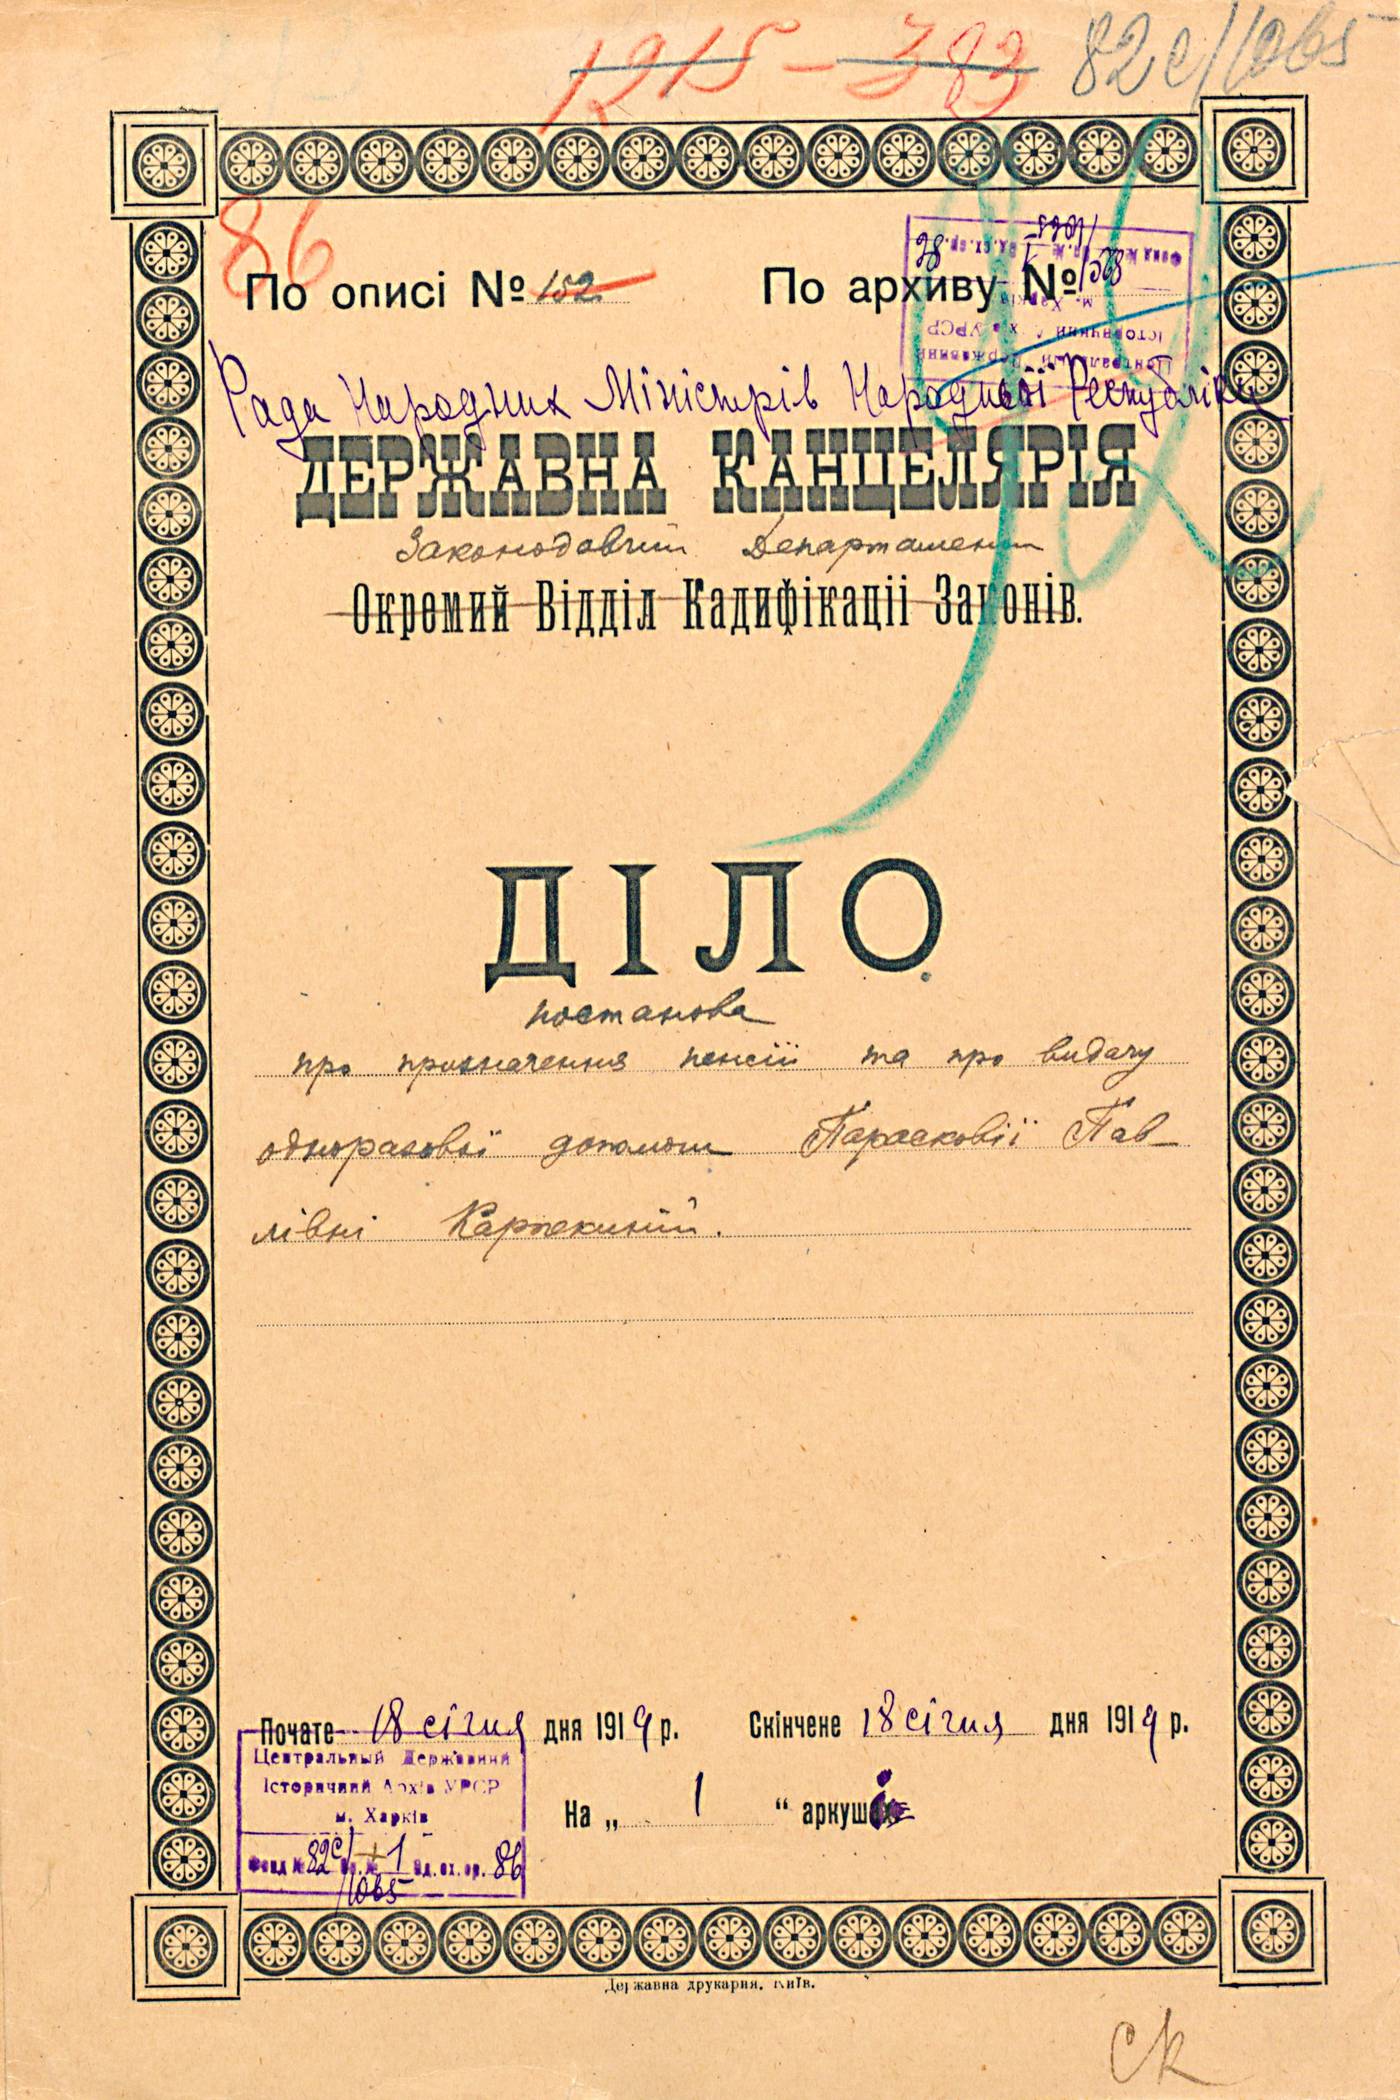 1915 - 383 82с/1065
86
По описі № 152 По архиву №
Центральний Державний
Історичний Архів УРСР
м. Харків
Фонд № 82с/1065 Оп. № 1 Од.сх.ор. 86
Рада Народних Міністрів Народньої Республіки
ДЕРЖАВНА КАНЦЕЛЯРІЯ
Законодавчий Департамент
Окремий Відділ Кадифікаціі Законів.
ДІЛО
постанова
про призначення пенсії та про видачу
одноразової допомоги Парасковії Пав-
лівні
Почате 18 січня дня 1919 р. Скінчене 18 січня дня 1919 р.
Центральный Державний
Історичний Архів УРСР
м. Харків
Фонд № 82с/1065 Оп. № 1 Од.сх.ор. 86
На „ 1 “ аркуші
Державна друкарня, Київ.
СК